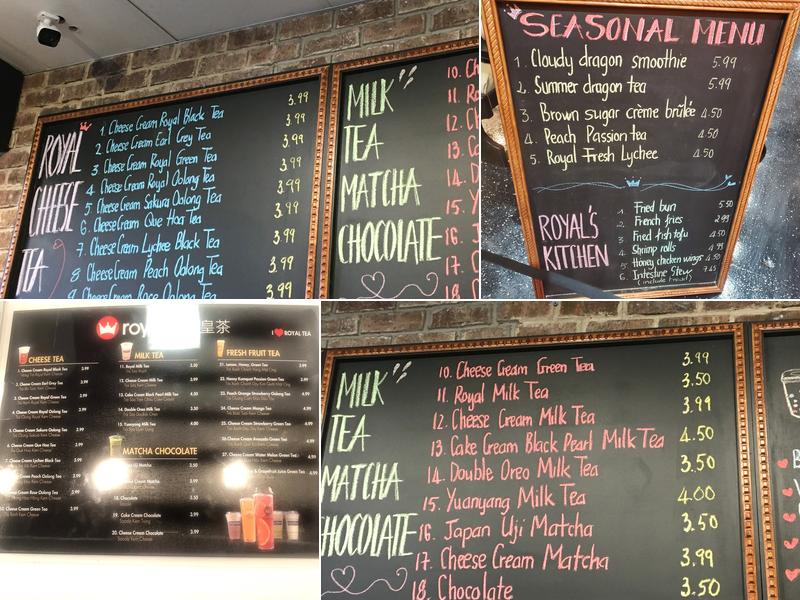 ROYAL
CHEESE
TEA
1 Cheese Cream Royal Black Tea 3.99
2 Cheese Cream Earl Grey Tea 3.99
3 Cheese Cream Royal Green Tea 3.99
4 Cheese Cream Royal Oolong Tea 3.99
5 Cheese Cream Sakura Oolong Tea 3.99
6. Cheese Cream Que Hoa Tea 3.99
7. Cheese Cream Lychee Black Tea 3.99
8 Cheese Cream Peach Oolong Tea 3.99
9 Cheese Cream Rose Oolong Tea 3.99
MILK
TEA
MATCHA
CHOCOLATE
10. Ch
11. Ro
12. Ch
13. Ca
14. D
15. Y
16. J
17. C
18. C
SEASONAL MENU
1. Cloudy dragon smoothie 5.99
2. Summer dragon tea 5.99
3. Brown sugar crème brûlée 4.50
4. Peach Passion tea 4.50
5. Royal Fresh Lychee 4.50
ROYAL'S
KITCHEN
1. Fried bun 5.50
2. French fries 2.99
3. Fried fish tofu 4.50
4. Shrimp rolls 4.95
5. Honey chicken wings 4.50
6. Intestine Stew 7.45
(include bread)
roy 皇茶
I ROYAL TEA
CHEESE TEA
1. Cheese Cream Royal Black Tea 3.99
2. Cheese Cream Earl Grey Tea 3.99
3. Cheese Cream Royal Green Tea 3.99
4. Cheese Cream Royal Oolong Tea 3.99
5. Cheese Cream Sakura Oolong Tea 3.99
6. Cheese Cream Que Hoa Tea 3.99
7. Cheese Cream Lychee Black Tea 3.99
Cheese Cream Peach Oolong Tea 3.99
Cheese Cream Rose Oolong Tea 3.99
Cheese Cream Green Tea 3.99
MILK TEA
11. Royal Milk Tea 3.50
12. Cheese Cream Milk Tea 3.99
13. Cake Cream Black Pearl Milk Tea 4.50
14. Double Oreo Milk Tea 3.50
15. Yuanyang Milk Tea 4.00
MATCHA CHOCOLATE
Uji Matcha 3.50
Cream Matcha 3.99
18. Chocolate 3.50
19. Cake Cream Chocolate 3.99
20. Cheese Cream Chocolate 3.99
FRESH FRUIT TEA
21. Lemon, Honey, Green Tea
22. Honey Kumquat Passion Green Tea
23. Peach Orange Strawberry Oolong Tea
24. Cheese Cream Mango Tea
25. Cheese Cream Strawberry Green Tea
Cheese Cream Avocado Green Tea
27. Cheese Cream Water Melon Green Tea
& Grapefruit Juice Green Tea 4.99
MILK
TEA
MATCHA
HOCOLATE
10. Cheese Cream Green Tea 3.99
11. Royal Milk Tea 3.50
12. Cheese Cream Milk Tea 3.99
13. Cake Cream Black Pearl Milk Tea 4.50
14. Double Oreo Milk Tea 3.50
15. Yuanyang Milk Tea 4.00
16. Japan Uji Matcha 3.50
17. Cheese Cream Matcha 3.99
18. Chocolate 3.50